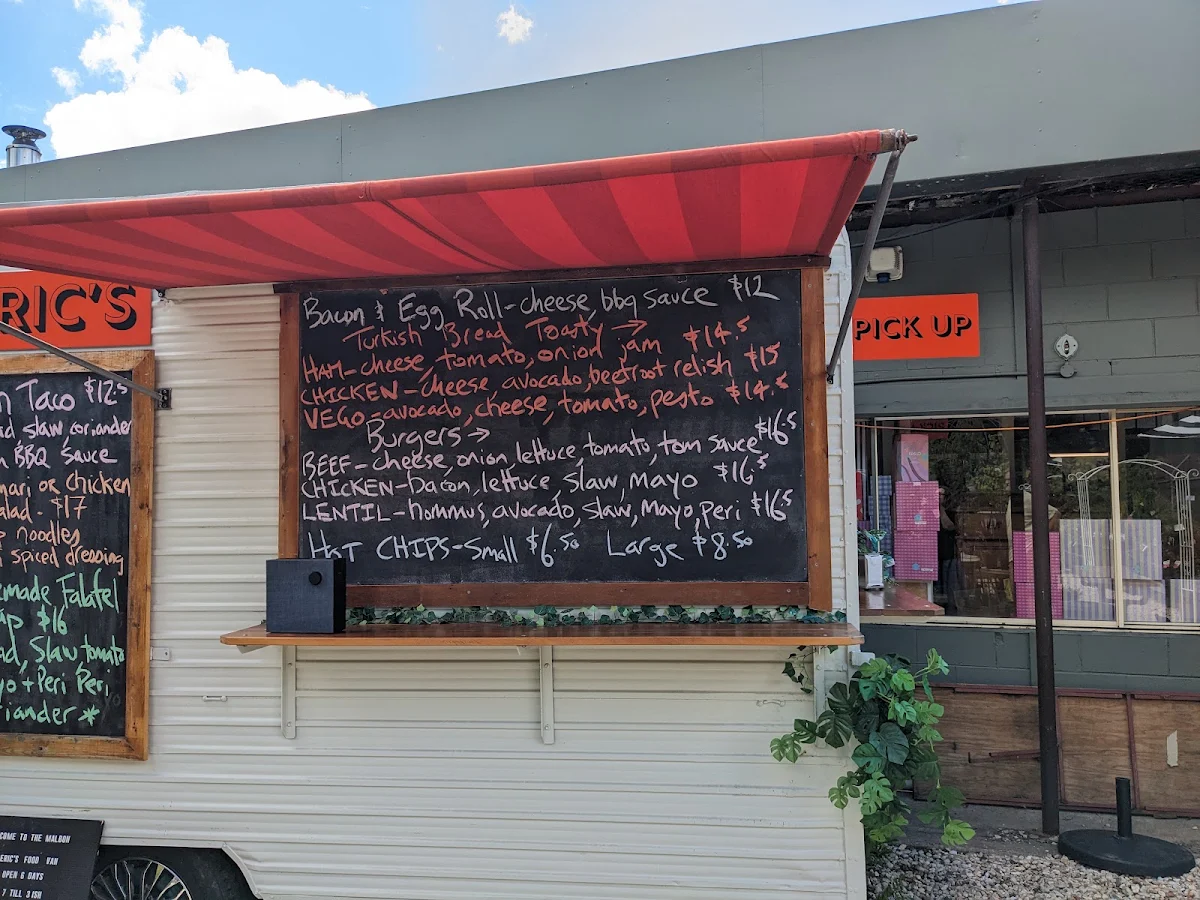 ERIC'S
n Taco $12.5
d slaw coriander
BBQ Sauce
mari or chicken
alad - $17
noodles
spiced dressing
emade Falafel
ap $16
ad, Slaw tomato
yo + Peri Peri
iander *
Bacon & Egg Roll - cheese, bbq sauce $12
Turkish Bread Toasty →
HAM - cheese, tomato, onion jam $14.5
CHICKEN - cheese avocado, beetroot relish $15
VEGO - avocado, cheese, tomato, pesto $14.5
Burgers →
BEEF - cheese, onion lettuce tomato, tom sauce $16.5
CHICKEN - bacon, lettuce slaw, mayo $16.5
LENTIL - hommus, avocado, slaw, mayo, Peri $16.5
HOT CHIPS - Small $6.50 Large $8.50
PICK UP
COME TO THE MALDON
ERIC'S FOOD VAN
OPEN 6 DAYS
7 TILL 3 ISH